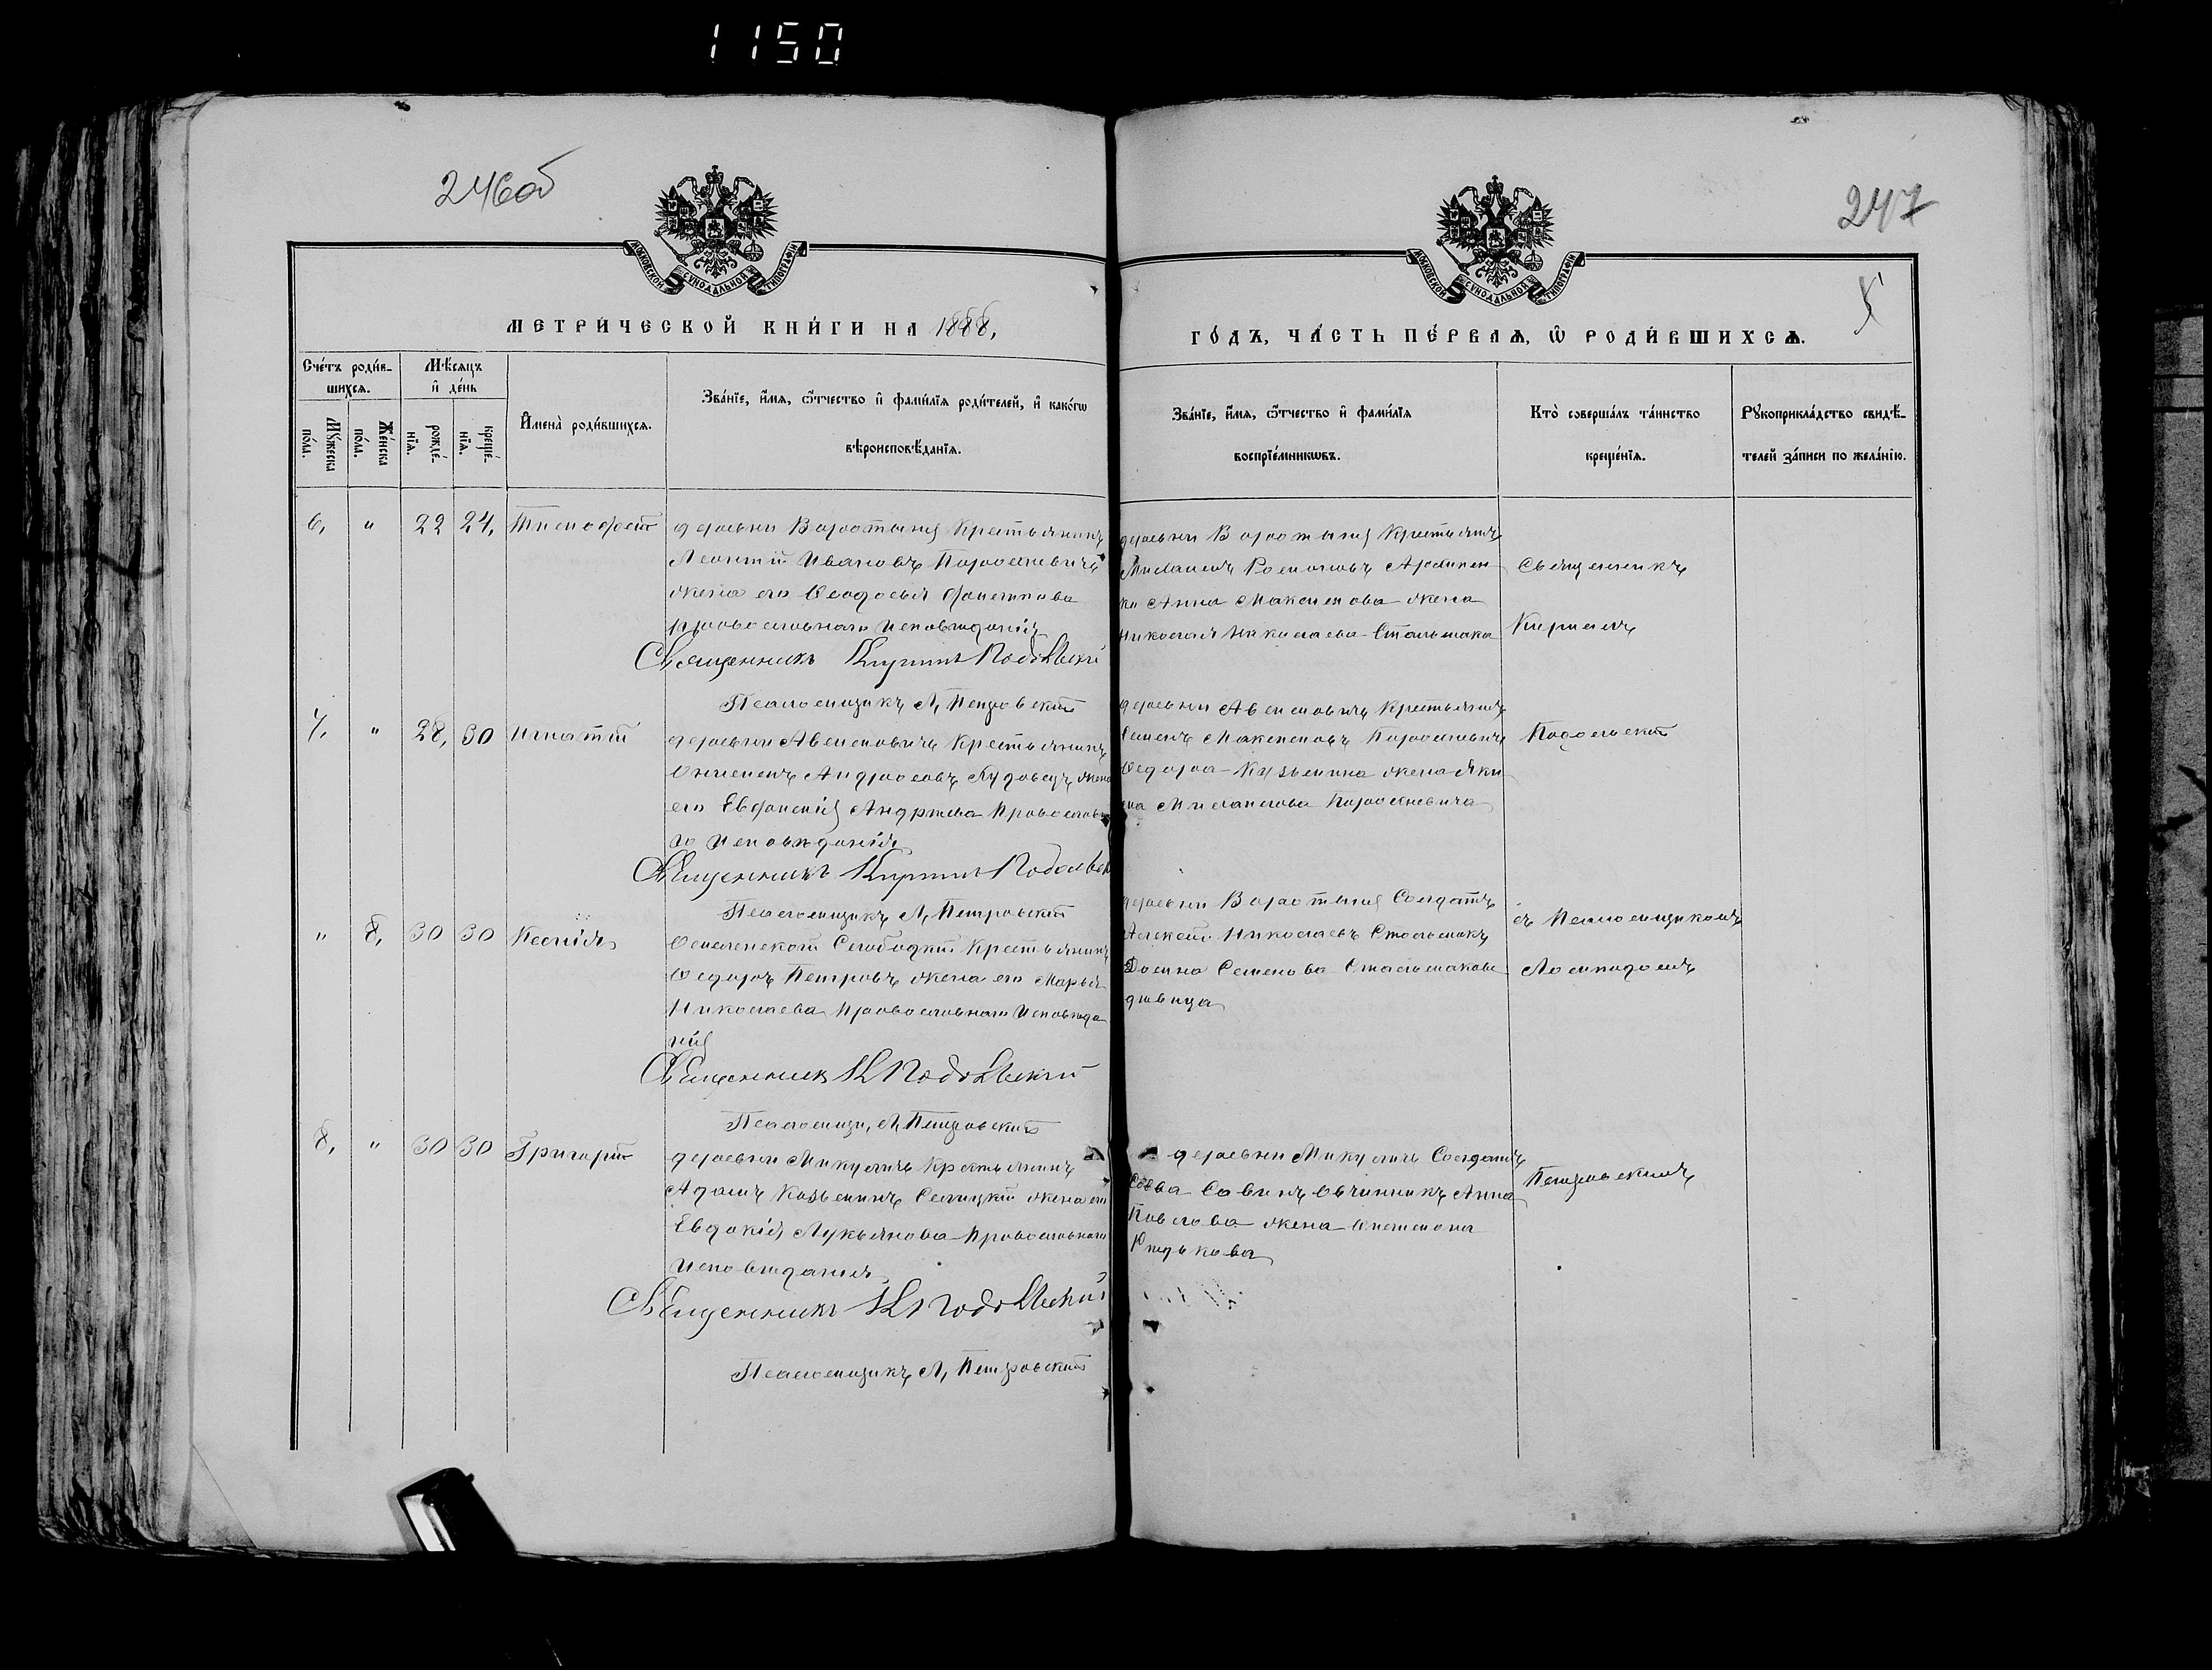 1150
246об
247
5
МОСКОВСКОЙ СѴНОДАЛЬНОЙ ТИПОГРАФІИ
МОСКОВСКОЙ СѴНОДАЛЬНОЙ ТИПОГРАФІИ
МЕТРИ́ЧЕСКОЙ КНИ́ГИ НА 1888,
ГО́ДЪ, ЧА́СТЬ ПЕ́РВАѦ, Ѿ РОДИ́ВШИХСѦ.
Сче́тъ роди́в-
шихся.
Мѣ́сяцъ
и҆ де́нь
Мꙋ́жеска
по́ла.
Же́нска
по́ла.
рожде́-
нїя.
креще́-
нїя.
И҆мена̀ роди́вшихся.
Зва́нїе, и҆́мя, ѻ҆́тчество и҆ фами́лїя роди́телей, и҆ како́гѡ
вѣроисповѣ́данїя.
Зва́нїе, и҆́мя, ѻ҆́тчество и҆ фами́лїя
воспрїе́мникѡвъ.
Кто̀ соверша́лъ та́инство
креще́нїя.
Рꙋкоприкла́дство свидѣ́-
телей за́писи по жела́нїю.
6, " 22 24, Тимофей
деревни Воротыня Крестьянинъ
Леонтій Ивановъ
жена его Ѳеодосья
православнаго исповѣданія
Священникъ Кириллъ Подольскій
Псаломщикъ Л, Петровскій
деревни Воротыня Крестьянинъ
Анна Максимова жена
Николая Николаева Стальмака
Священникъ
Кириллъ
7, " 28, 30 Игнатій
деревни Крестьянинъ
жена
его Евдокія Андреева Православна
го исповѣданія
Священникъ Кириллъ Подольск
Псаломщикъ Л, Петровскій
деревни Крестьянинъ
Семенъ Максимовъ
Кузьмина жена Яки
ма
Подольскій
" 8, 30 30 Ксенія
Слободки Крестьянинъ
Ѳедоръ Петровъ жена его Марья
Николаева православнаго исповѣда
нія
Священникъ К Подольскій
Псаломщи, Л, Петровскій
деревни Воротыня Солдатъ
Алексей Николаевъ Стальмакъ
Домна Семенова Стальмакова
дѣвица
съ Псаломщикомъ
Леонидомъ
8, " 30 30 Григорій
деревни Микуличъ Крестьянинъ
Адамъ Козьминъ жена его
Евдокія Лукьянова Православнаго
исповѣданія
Священникъ К Подольскій
Псаломщикъ Л, Петровскій
деревни Микуличъ Солдатъ
Савва Савинъ Овчинникъ Анна
Павлова жена
Рѣдькова
Петровскимъ